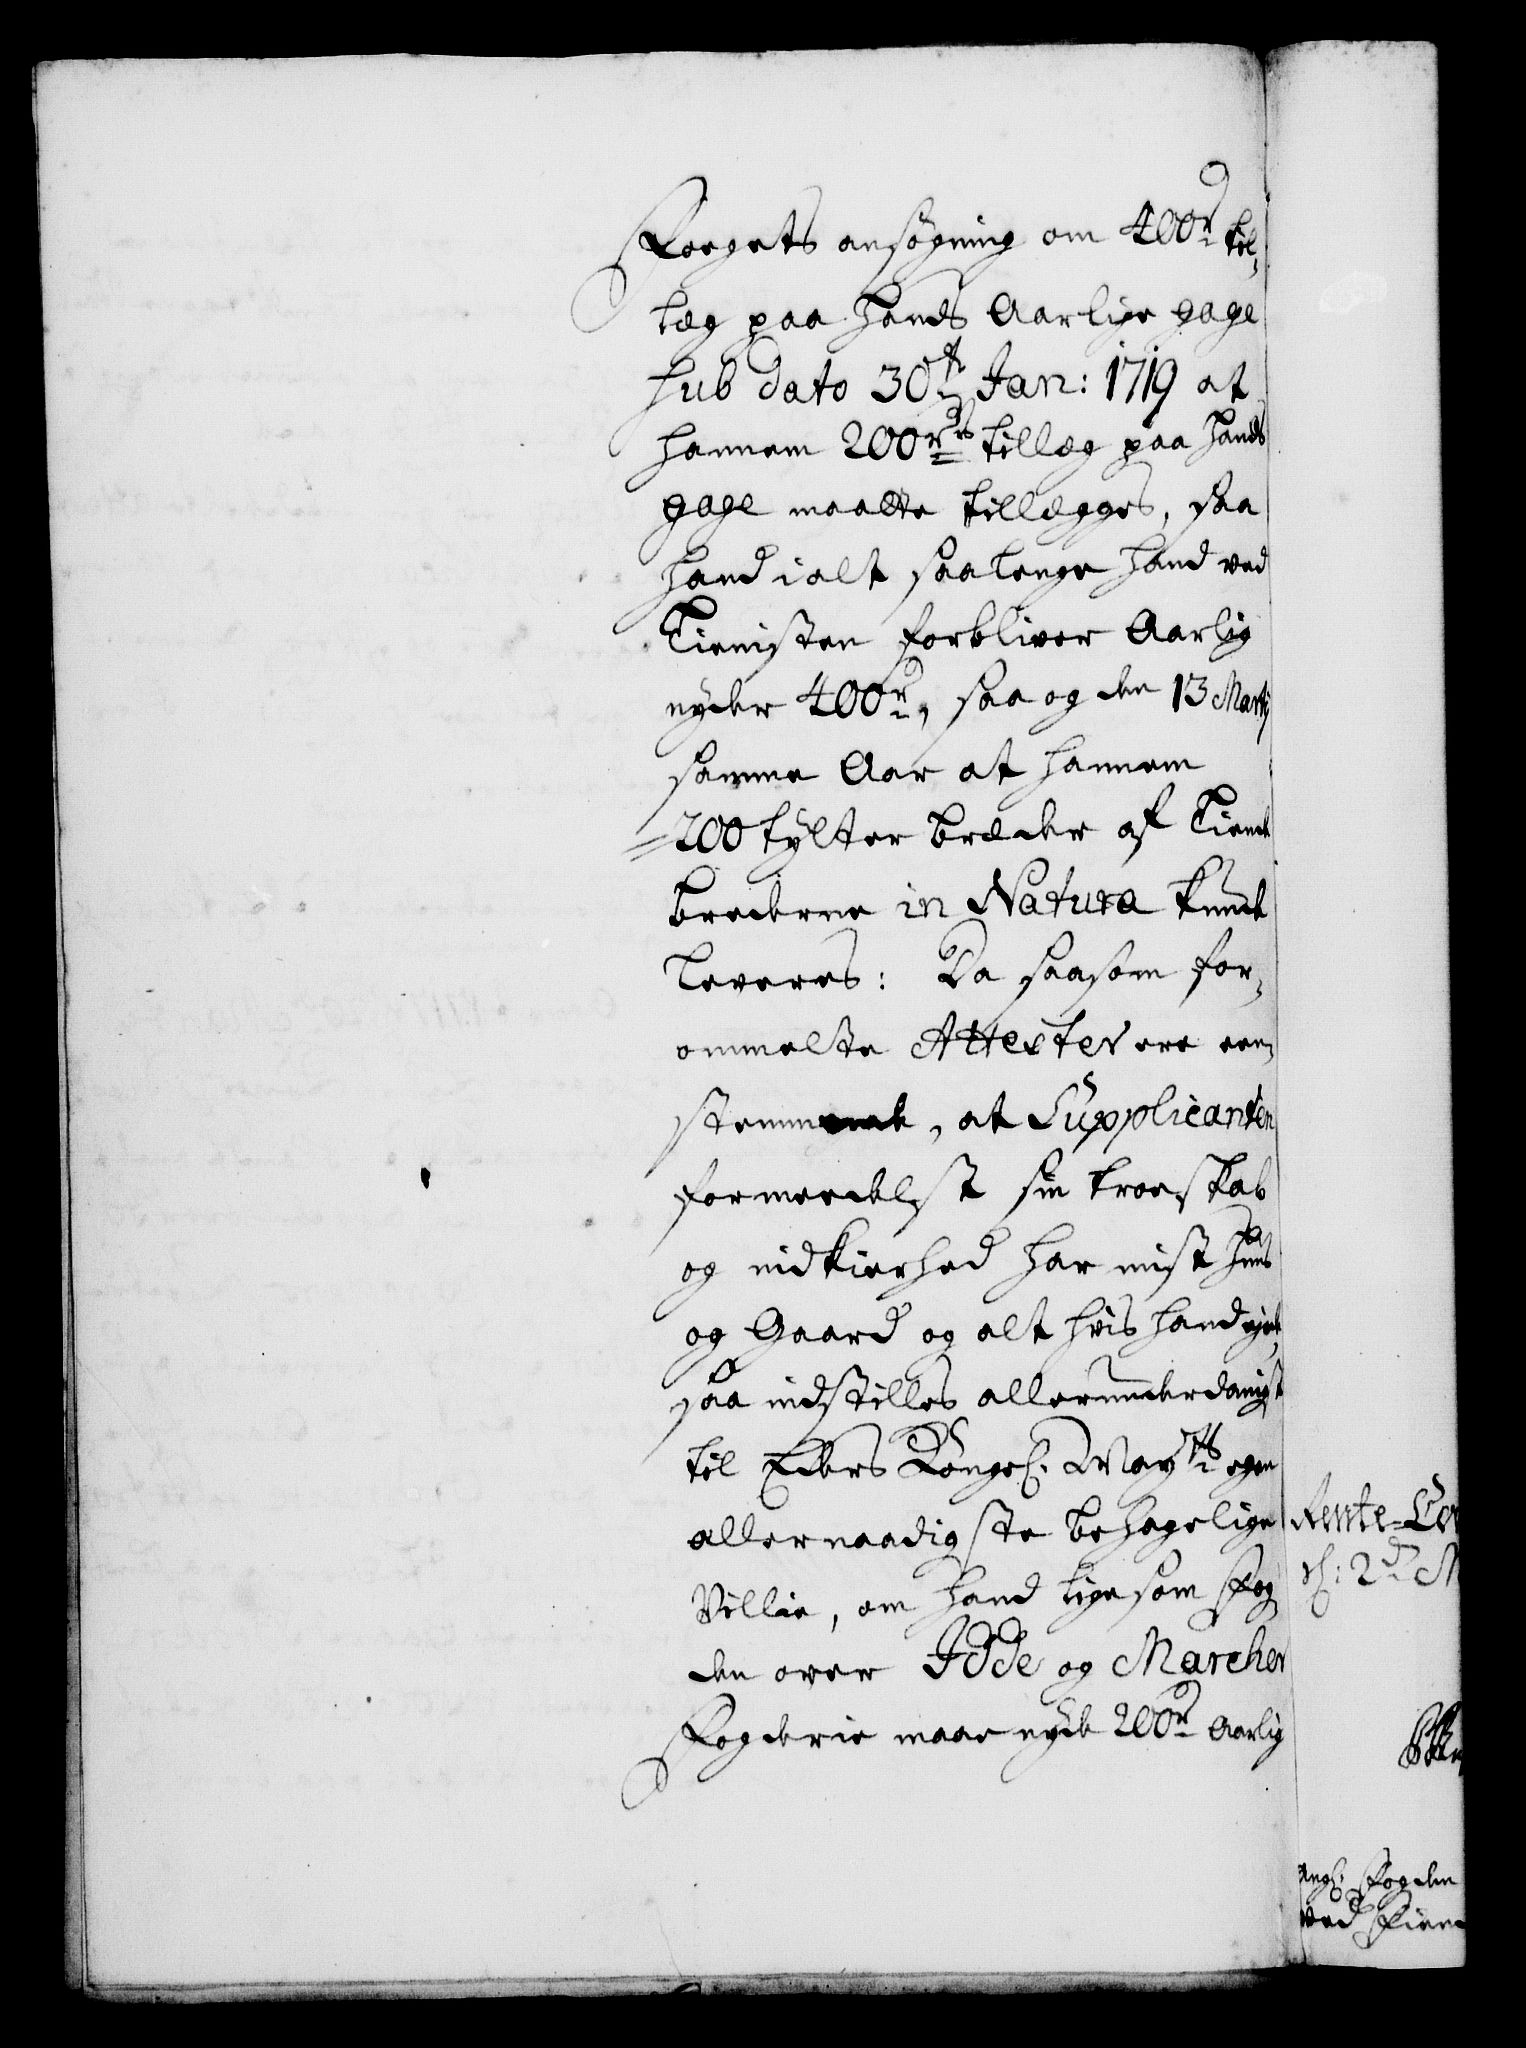 Foegets ansøgning om 400 rd til,
læg paa hands Aarlige gage
sub dato 30te Jan: 1719 at
hannem 200 rds tillæg paa hands
gage maatte tillegges, saa
hand i alt saa lenge hand ved
Tienisten forbliver Aarlig
nyder 400 rd, saa og den 13 Martij
samme Aar at hannem
200 tylter bræder af Tiende
brederne in Natura kunde
leveres: Da saasom for,
ommelte Attester ere een,
stemmende, at Supplicanten
formeedelst sin troeskab
og nidkierhed har mist Huus
og Gaard og alt hvis hand ejede,
saa indstilles allerunderdanigst
til Eders Kongel. Mayts egen
allernaadigste behagelige
Villie, om hand ligesom Fog
den over Idde og Marcher
Fogderie maae nyde 200 rd Aarlig
Rente-
2d M
angl. Fogden
ved